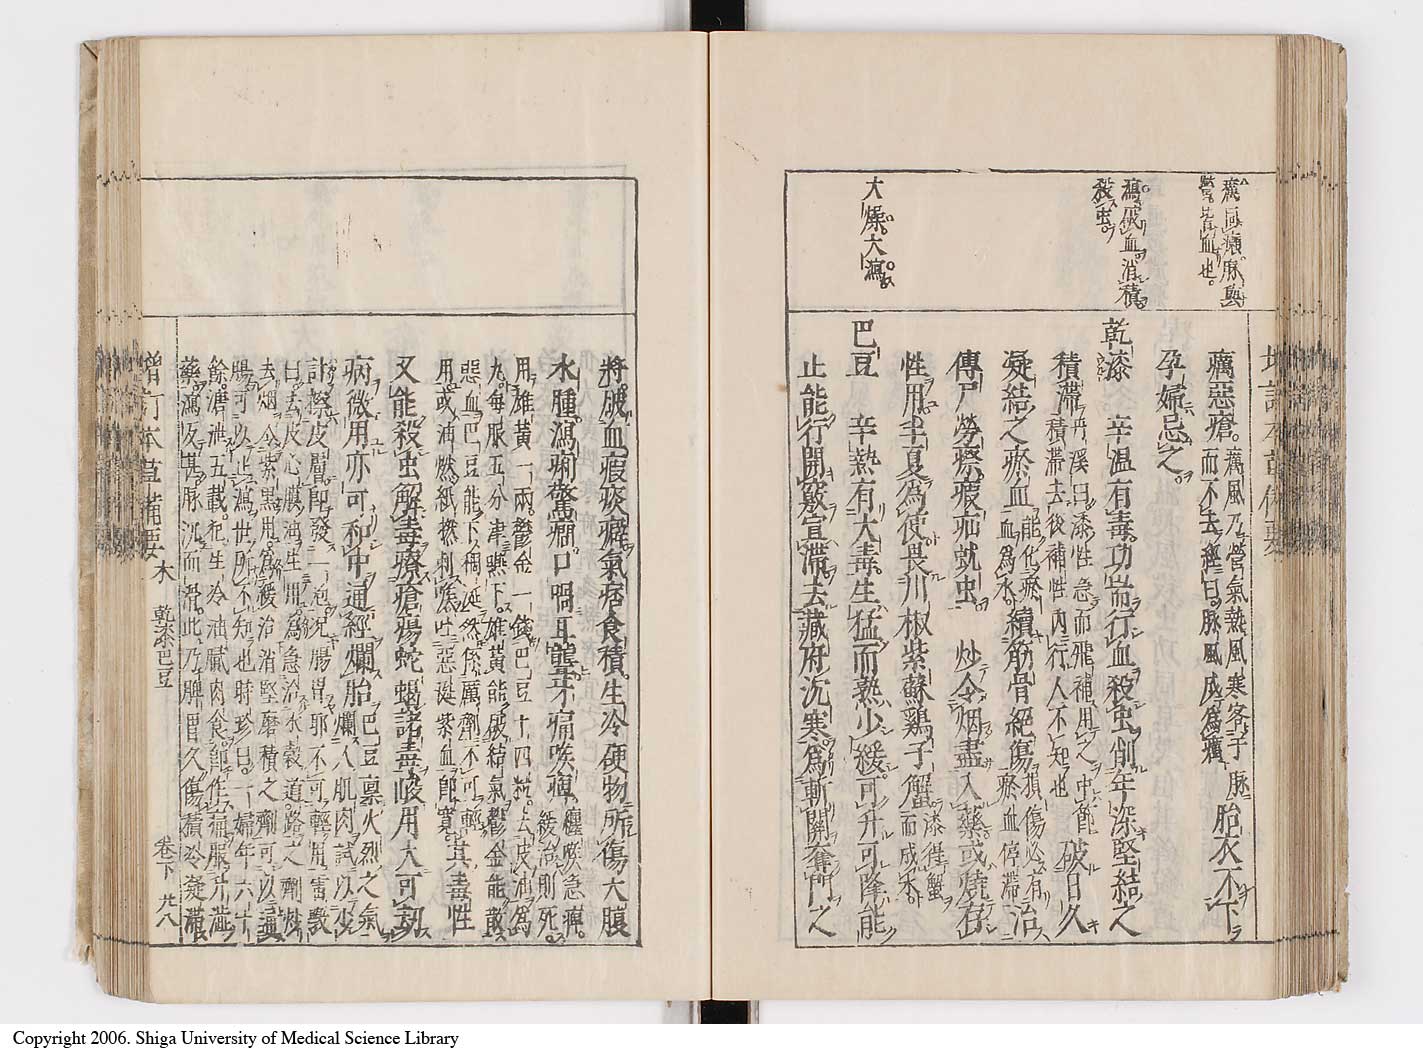 癘同癩。脈與
營皆血也。
瀉。破血消積
殺虫。
大燥。大瀉。
癘惡瘡。癘風乃營氣熱風寒客于脈而不去。經曰。脈風成為癘 胞衣不下
孕婦忌之
乾漆 辛溫有毒功耑行血殺虫削年深堅結之
積滯丹溪曰漆性急而飛補用之中節積滯去後補性內行人不知也 破日久
凝結之瘀血能化瘀血為水 續筋骨絕傷損傷必有瘀血停滯 治
傳尸勞瘵瘕疝蚘虫 炒令烟盡入藥或燒存
性用半夏為使畏川椒紫蘇鷄子蟹漆得蟹而成水
巴豆 辛熱有大毒生猛而熟少緩可升可降能
止能行開竅宣滯去藏府沈寒為斬關奪門之
將破血瘕痰癖氣痞食積生冷硬物所傷大腹
水腫瀉痢驚癇口喎耳聾牙痛喉痺纏喉急痺緩治則死
用雄黃一兩鬱金一錢巴豆十四粒去皮油為
丸每服五分津嚥下雄黃能破結氣鬱金能散
惡血巴豆能下稠涎然係厲劑不可輕
用或油燃紙撚刺喉吐惡涎紫血即寬 其毒性
又能殺虫解毒療瘡瘍蛇蝎諸毒峻用大可刼
病微用亦可和中通經爛胎巴豆稟火烈之氣爛人肌肉試以少
許擦皮膚即發一泡況腸胃耶不可輕用
曰去皮心膜油生用為急治水穀道路之劑炒
去烟令紫黑用為緩治消堅磨積之劑可以通
腸可以止瀉世所不知也時珍曰一婦年六十
餘溏泄五載犯生冷油膩肉食即作痛服升澁
藥瀉反甚脈沉而滑此乃脾胃久傷積冷凝滯
增訂本草備要 木 乾漆 巴豆 卷下 廿八
Copyright 2006. Shiga University of Medical Science Library